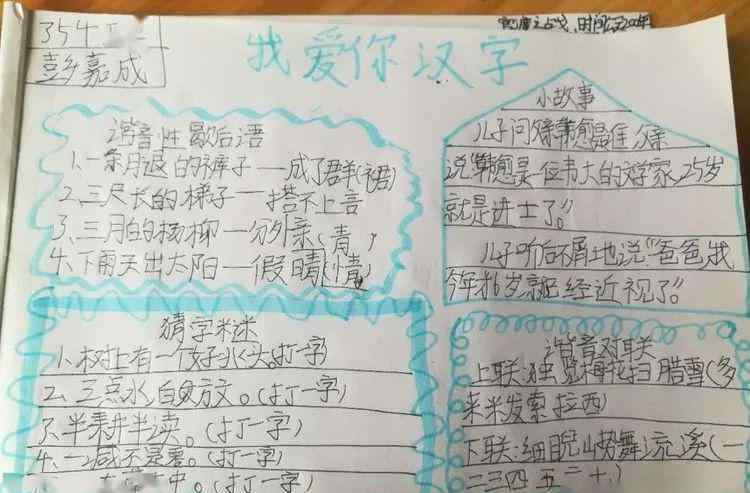 354
彭嘉成
我爱你汉字
谐音性歇后语
1、一条月退的裤子——成了群(裙)
2、三尺长的梯子——搭不上言
3、三月的杨柳—分外亲(青)
4、下雨天出太阳—假晴(情)
小故事
儿子问父亲韩愈是谁父亲
说"韩愈是一位韦大的文学家,25岁
就是进士了。"
儿子听后不屑地说"爸爸,我
今年16岁就已经近视了"。
猜字米迷
1、树上有一个好水。(打一字)
2、三点水,白文方文。(打一字)
3、半耕半读。(打一字)
4、一减不是。(打一字)
中。(打一字)
谐音对联
上联:独览梅花扫腊雪(多
来米发索拉西)
下联:细睨山势舞流溪(一
二三四五六七)